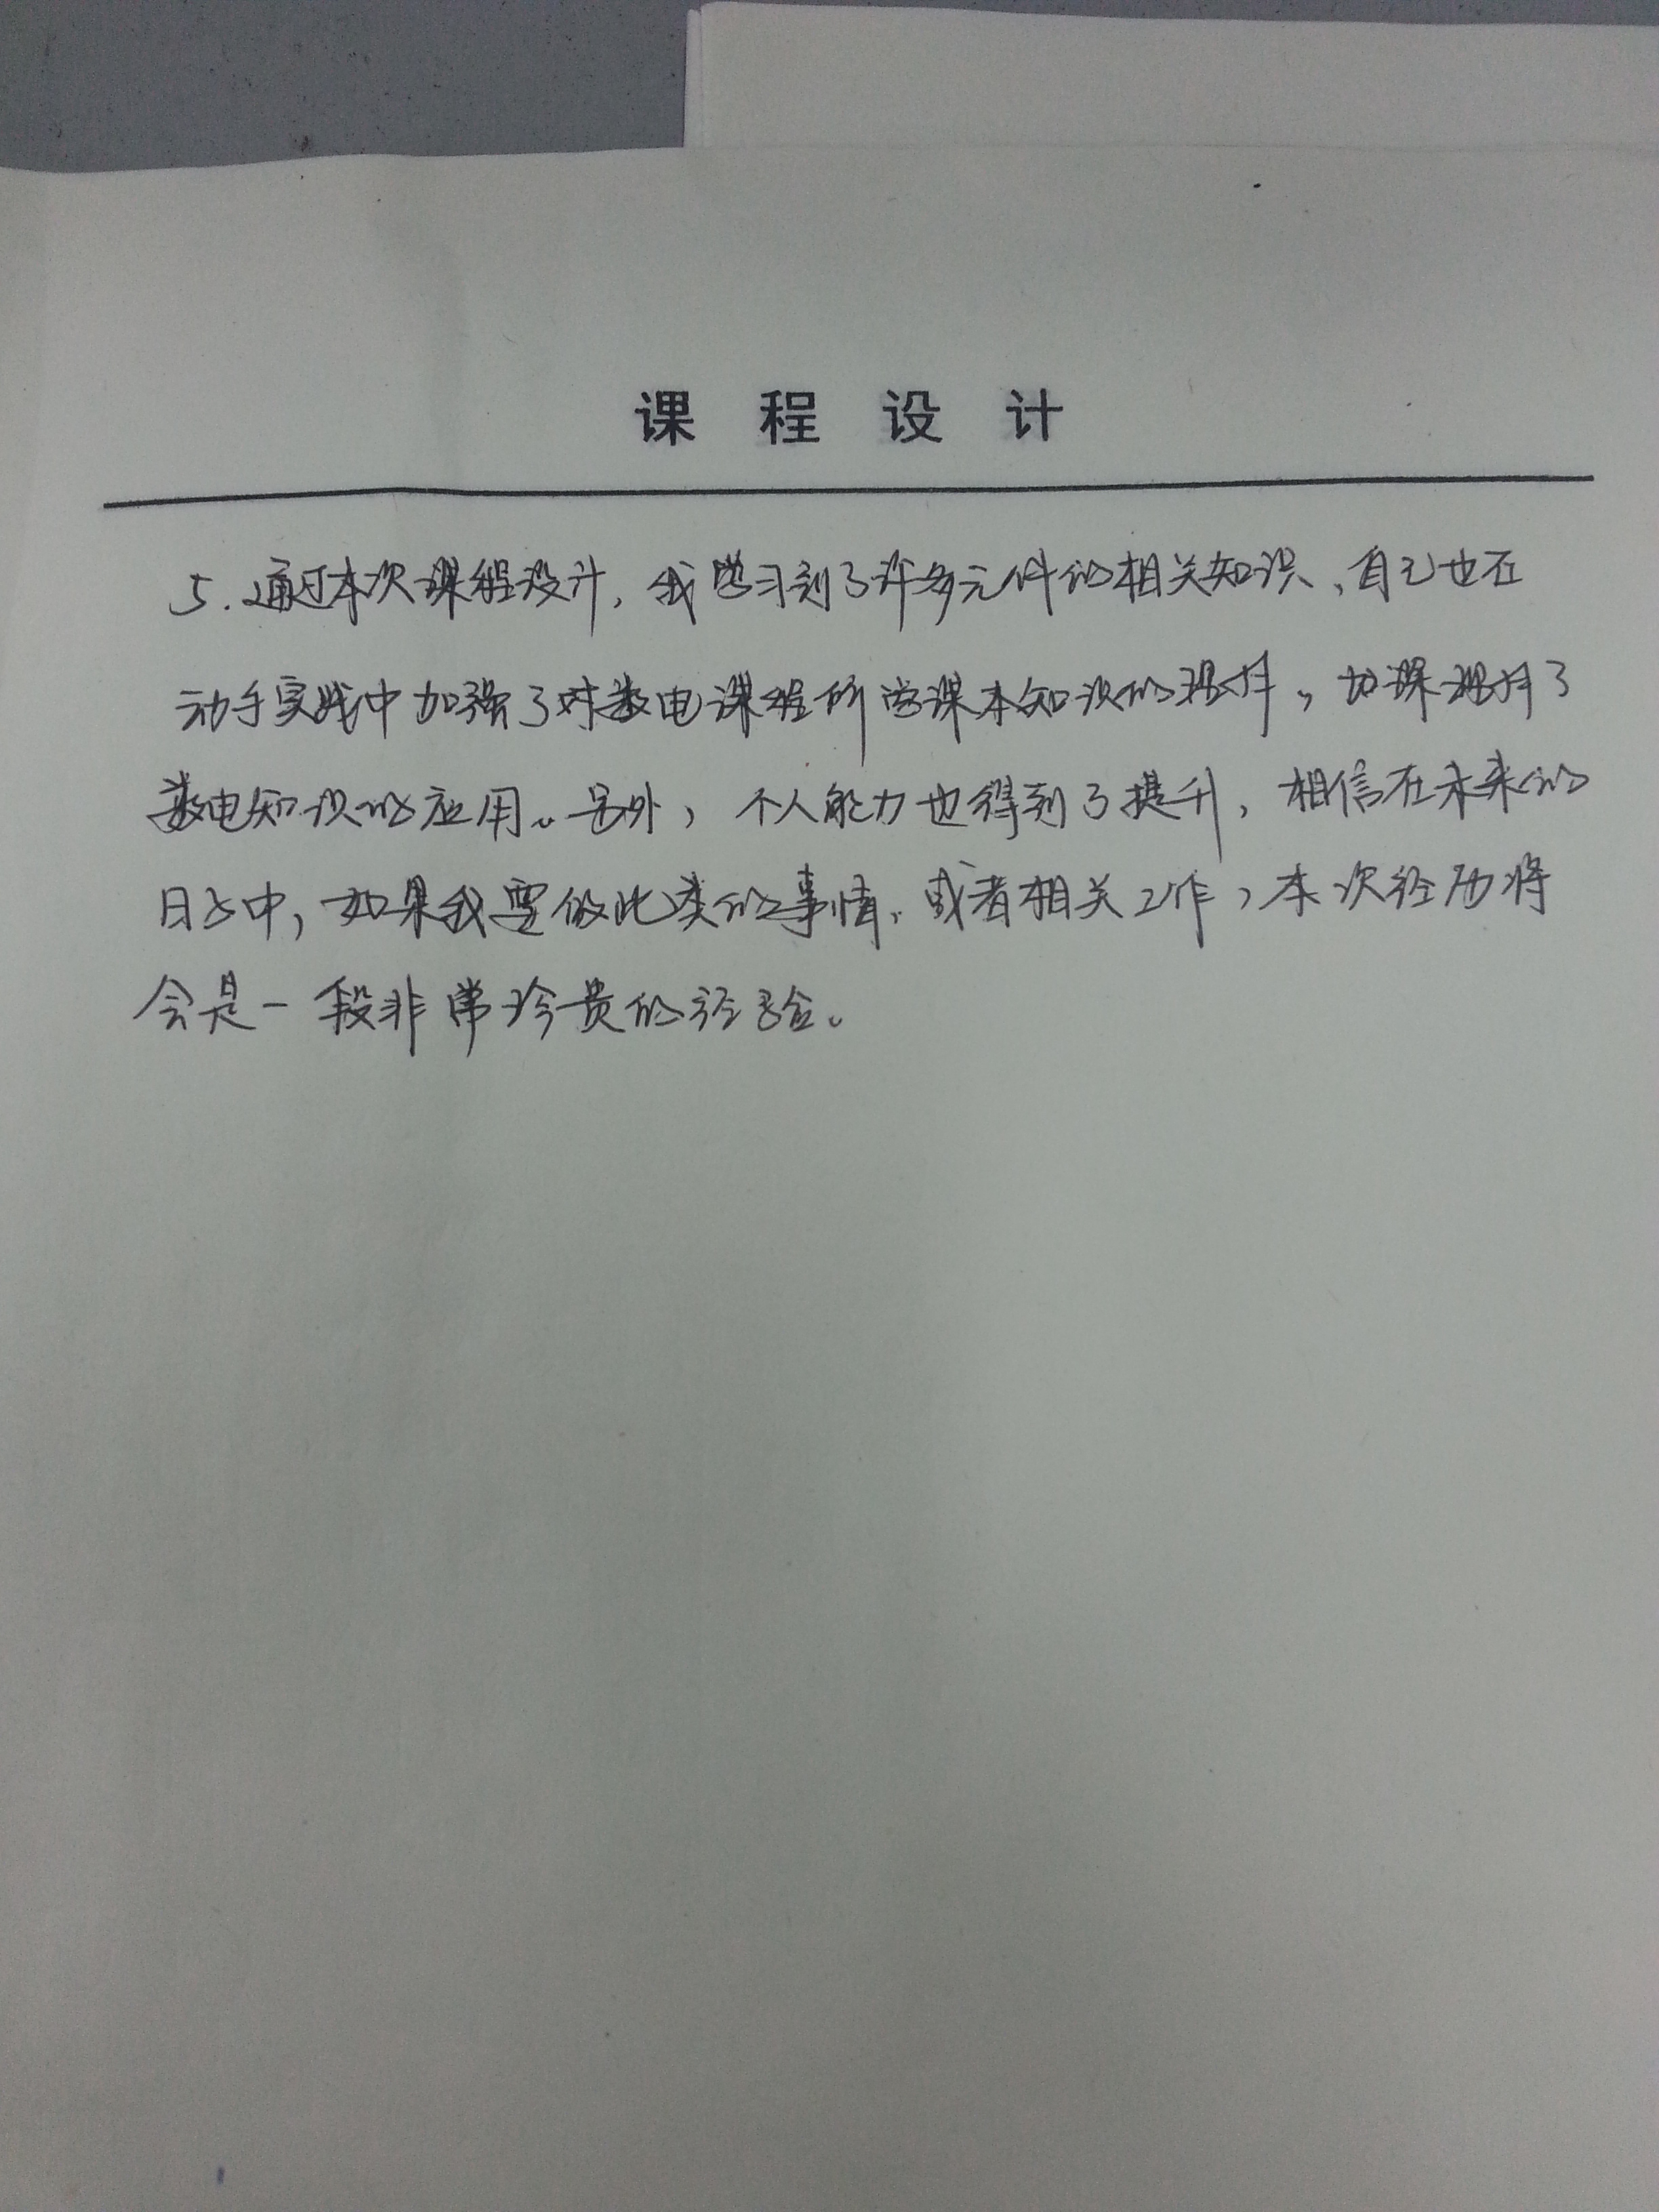 课程设计
5.通过本次课程设计,我学习到了许多元件的相关知识、自己也在
动手实践中加强了对数电课程所学课本知识的理解,加深理解了
数电知识的应用。另外,个人能力也得到了提升,相信在未来的
日子中,如果我要做此类的事情、或者相关工作,本次经历将
会是一段非常珍贵的经验。